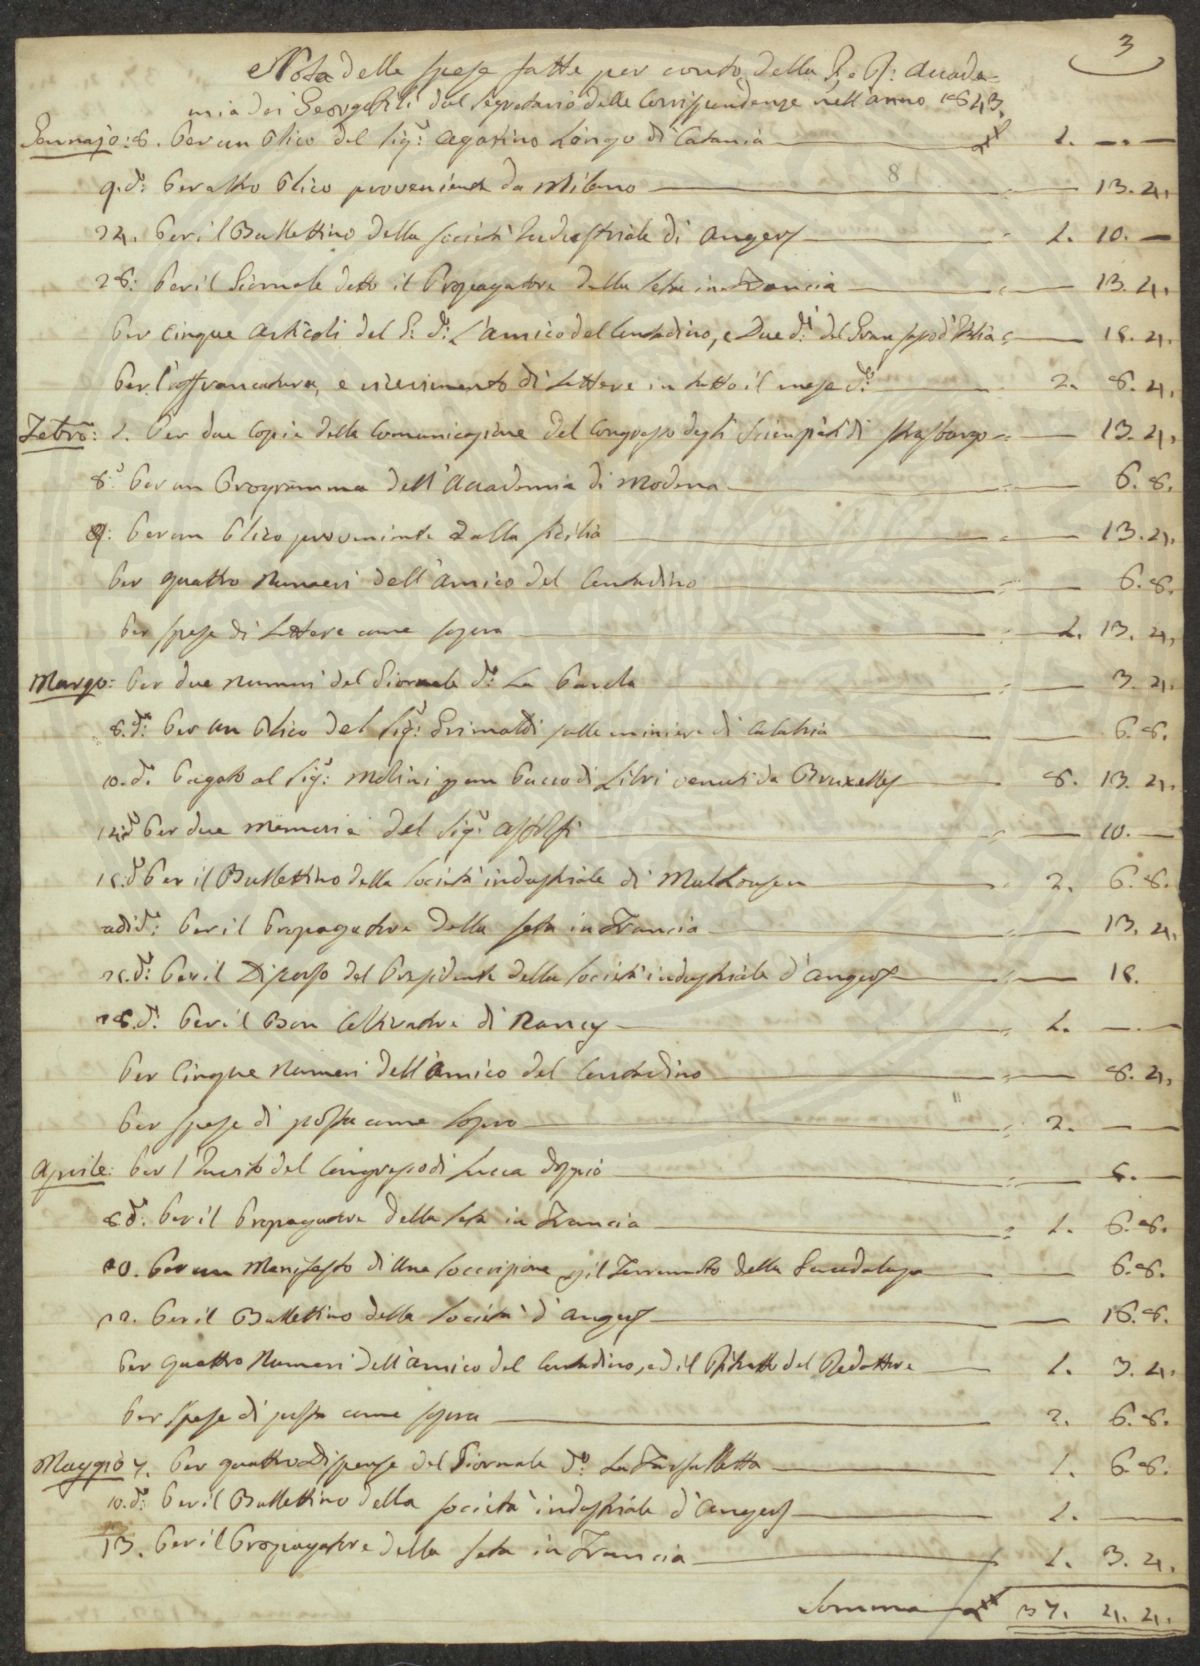 3
Nota delle spese fatte per conto della I. e R: Accade-
mia dei Georgofili dal Segretario delle Corrispondenze nell'anno 1843.
Gennajo: 8. Per un Plico del Sig.r Agatino Longo di Catania — 1. — —
9. d.o Per altro Plico proveniente da Milano — 13. 4.
8
24. Per il Bullettino della Società Industriale di Angers — 1. 10. —
28: Per il Giornale detto il Propagatore della Seta in Francia — 13. 4.
Per cinque articoli del G. d.o L'amico del Contadino, e Due d.i del Gran Sasso d'Italia — 18. 4.
Per l'affrancatura, e ricevimento di Lettere in tutto il mese d.o — 2. 8. 4.
Febro: 1. Per due Copie della Comunicazione del Congresso degli Scienziati di Strasburgo — 13. 4.
8: Per un Programma dell'Accademia di Modena — 6. 8.
9: Per un Plico proveniente dalla Sicilia — 13. 4.
Per quattro Numeri dell'Amico del Contadino — 6. 8.
Per spese di Lettere come sopra — 1. 13. 4.
Marzo: Per due numeri del Giornale d.o La Parola — 3. 4.
8. d.o Per un Plico del Sig.r Grimaldi sulle miniere di Calabria — 6. 8.
10. d.o Pagato al Sig.r Molini p un Pacco di Libri venuti da Bruxelles — 8. 13. 4.
14. d.o Per due memorie del Sig.r — 10. —
15. d.o Per il Bullettino della Società industriale di Mulhousen — 2. 6. 8.
adi d.o: Per il Propagatore della Seta in Francia — 13. 4.
25. d.o: Per il Discorso del Presidente della Società industriale d'Angers — 18.
28. d.o Per il Bon Coltivatore di Nancy — 1. — —
Per Cinque Numeri dell'Amico del Contadino — 8. 4.
Per spese di posta come sopra — 2. — —
Aprile: Per l'Invito del Congresso di Lucca doppio — 5. —
8 d.o: Per il Propagatore della Seta in Francia — 1. 6. 8.
20. Per un Manifesto di Una Soccrizione p il Terremoto della Guadalupa — 6. 8.
22. Per il Bullettino della Società d'Angers — 16. 8.
Per quattro Numeri dell'Amico del Contadino, ed il Ritratto del Redattore — 1. 3. 4.
Per Spese di posta come sopra — 2. 6. 8.
Maggio 7. Per quattro Dispense del Giornale d.o La Farfalletta — 1. 6. 8.
10. d.o Per il Bullettino della Società industriale d'Angers — 1. —
13. Per il Propagatore della Seta in Francia — 1. 3. 4.
Somma — 37. 4. 4.